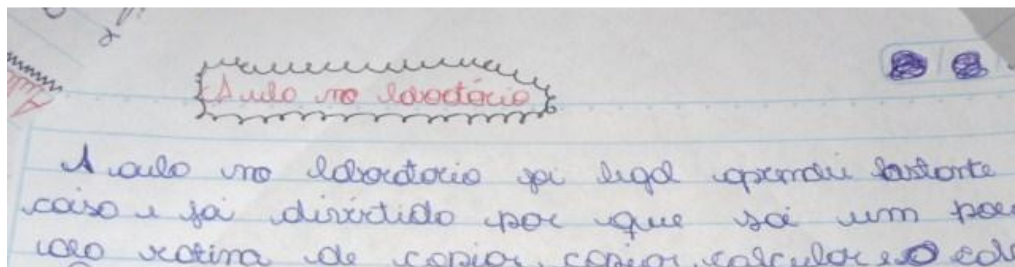 Aula no laboratório
A aula no laboratorio foi legal aprendi bastante
coisa e foi divertido por que sai um pou
rotina de copiar, copiar, calcular e